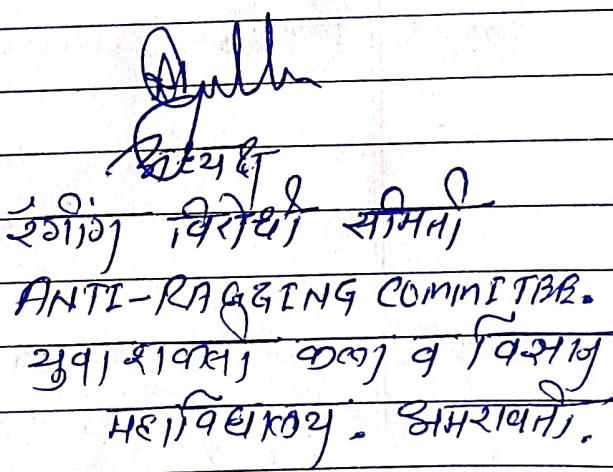 अध्यक्ष
रॅगींग विरोधी समिती
ANTI-RAGGING COMMITEE.
युवा शक्ती कला व विज्ञान
महाविद्यालय. अमरावती.